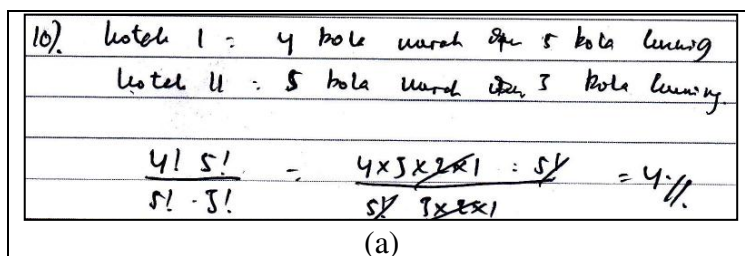 10). kotak I = 4 bola merah dan 5 bola kuning
kotak II = 5 bola merah dan 3 bola kuning.
4! 5! / 5! . 3! = 4x3x2x1 : 5! / 5! 3x2x1 = 4 //.
(a)